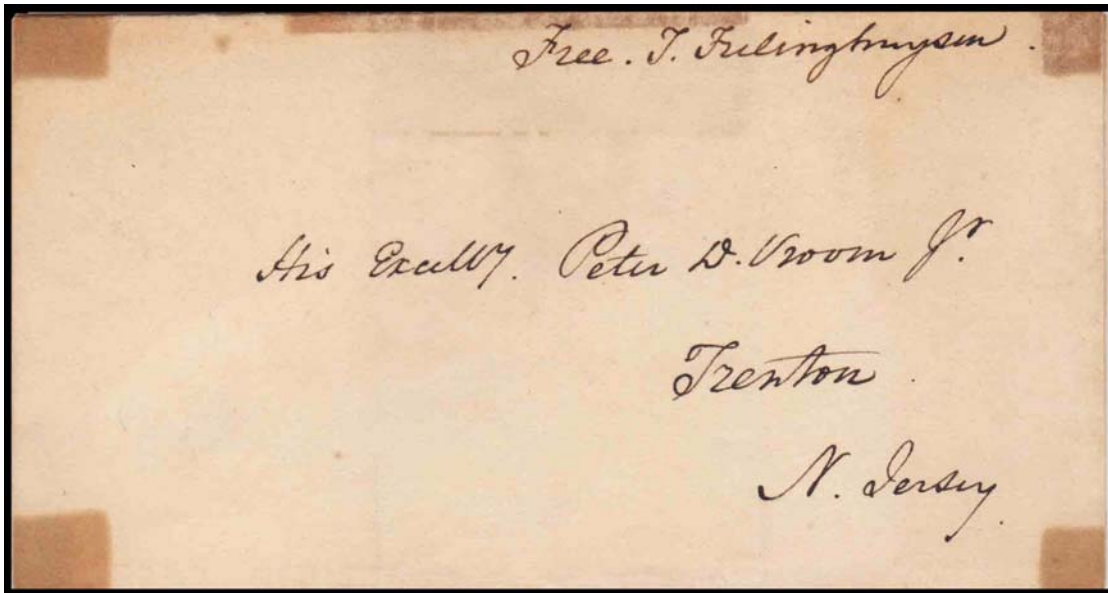 Free. T. Frelinghuysen.
His Excelly. Peter D. Vroom Jr.
Trenton.
N. Jersey.